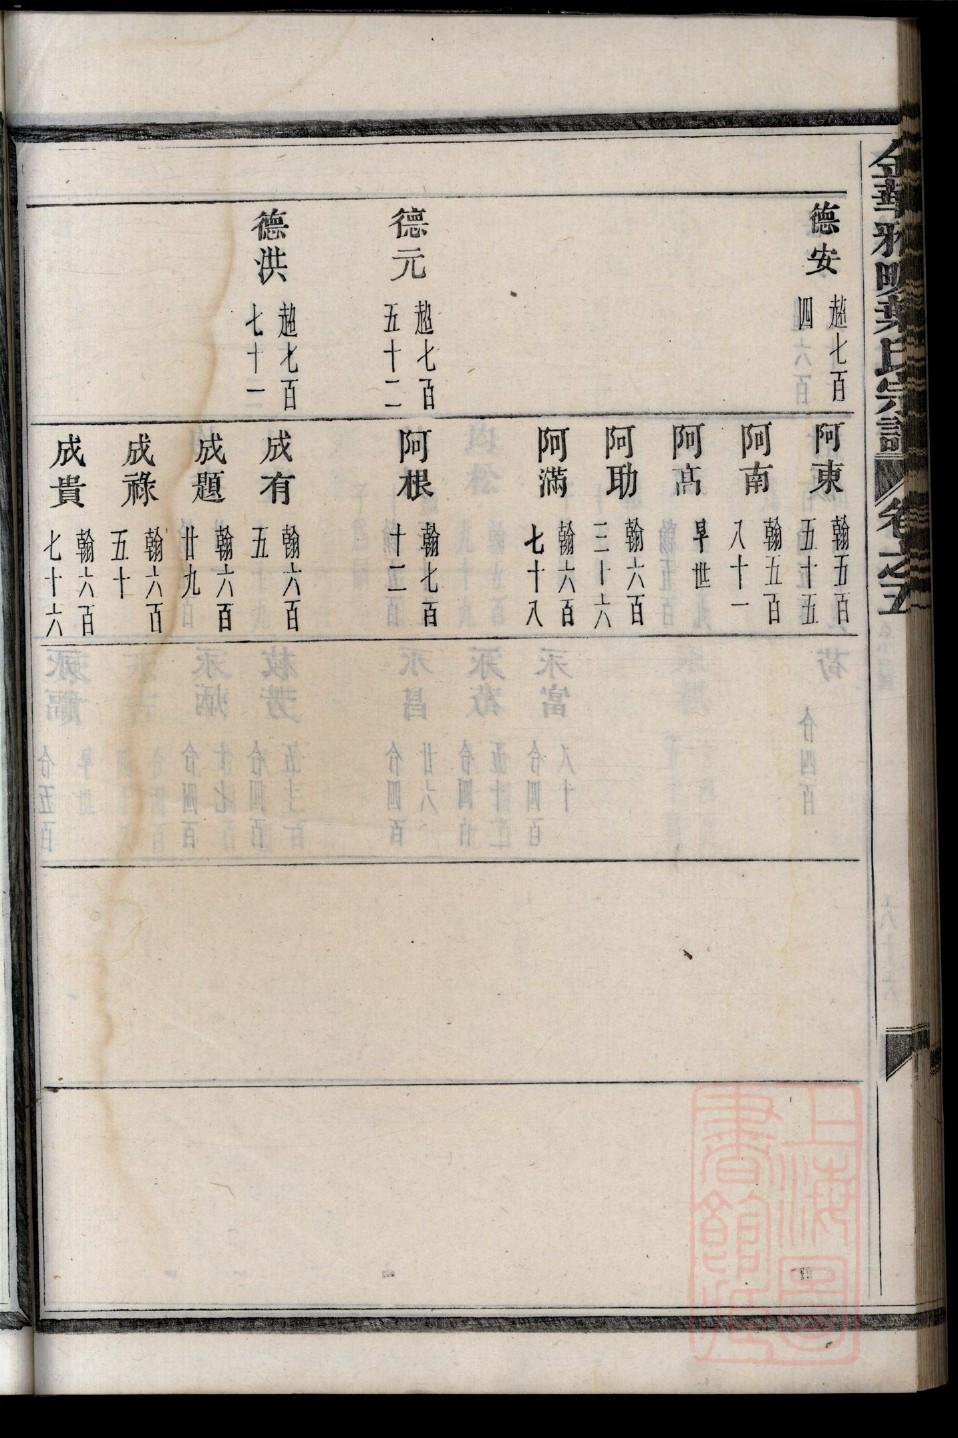 金華雅畈葉氏宗譜 卷之五
德安 趙七百四
德元 趙七百五十二
德洪 趙七百七十一
阿東 翰五百五十五
阿南 翰五百八十一
阿高 早世
阿助 翰六百三十六
阿滿 翰六百七十八
阿根 翰七百十二
成有 翰六百五
成題 翰六百廿九
成祿 翰六百五十
成貴 翰六百七十六
上海圖書館藏